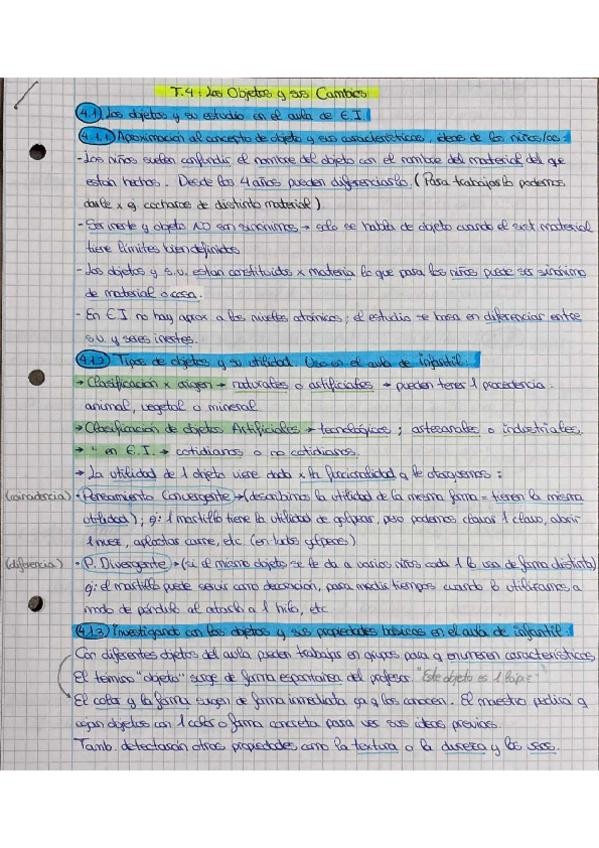 T.4: Los Objetos y sus Cambios
4.1 Los objetos y su estudio en el aula de E.I.
4.1.1 Aproximación al concepto de objeto y sus características, ideas de los niños/as:
- Los niños suelen confundir el nombre del objeto con el nombre del material del que
están hechos. Desde los 4 años pueden diferenciarlo. (Para trabajarlo podemos
darle x ej cucharas de distinto material)
- Ser inerte y objeto NO son sinónimos → solo se habla de objeto cuando el material
tiene límites bien definidos
- Los objetos y s.v. están constituidos x materia lo que para los niños puede ser sinónimo
de material o cosa.
- En E.I no hay aprox a los niveles atómicos; el estudio se basa en diferenciar entre
s.v. y seres inertes.
4.1.2 Tipos de objetos y su utilidad. Uso en el aula de infantil:
→ Clasificación x origen → naturales o artificiales → pueden tener 1 procedencia:
animal, vegetal o mineral
→ Clasificación de objetos Artificiales → tecnológicos; artesanales o industriales.
→ " en E.I. → cotidianos o no cotidianos.
→ La utilidad de 1 objeto viene dada x la funcionalidad q le otorguemos:
(coincidencia) · Pensamiento Convergente → (describimos la utilidad de la misma forma = tienen la misma
utilidad); ej: 1 martillo tiene la utilidad de golpear, pero podemos clavar 1 clavo, abrir
1 nuez, aplastar carne, etc (en todos golpeas)
(diferencia) · P. Divergente → (si el mismo objeto se le da a varios niños cada 1 lo usa de forma distinta)
ej: el martillo puede servir como decoración, para medir tiempos cuando lo utilizamos a
modo de péndulo al atarlo a 1 hilo, etc
4.1.3 Investigando con los objetos y sus propiedades básicas en el aula de infantil:
Con diferentes objetos del aula pueden trabajar en grupos para q enumeren características
El término "objeto" surge de forma espontánea del profesor "Este objeto es 1 lápiz"
El color y la forma surgen de forma inmediata ya q los conocen. El maestro pedirá q
cojan objetos con 1 color o forma concreta para ver sus ideas previas.
Tamb. detectarán otras propiedades como la textura o la dureza y los usos.